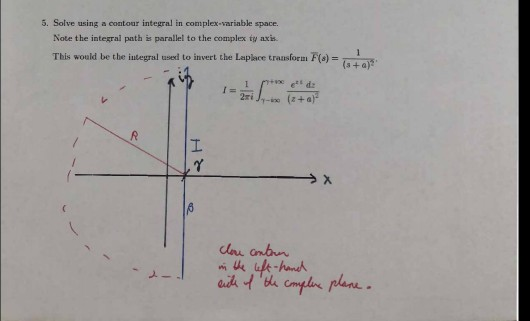 5. Solve using a contour integral in complex-variable space.
Note the integral path is parallel to the complex iy axis.
This would be the integral used to invert the Laplace transform F̅(s) = 1/(s + a)².
I = 1/2πi ∫_{γ-i∞}^{γ+i∞} e^{zt} dz/(z + a)²
iy
R
I
γ
x
β
close contour
in the left-hand
side of the complex plane.